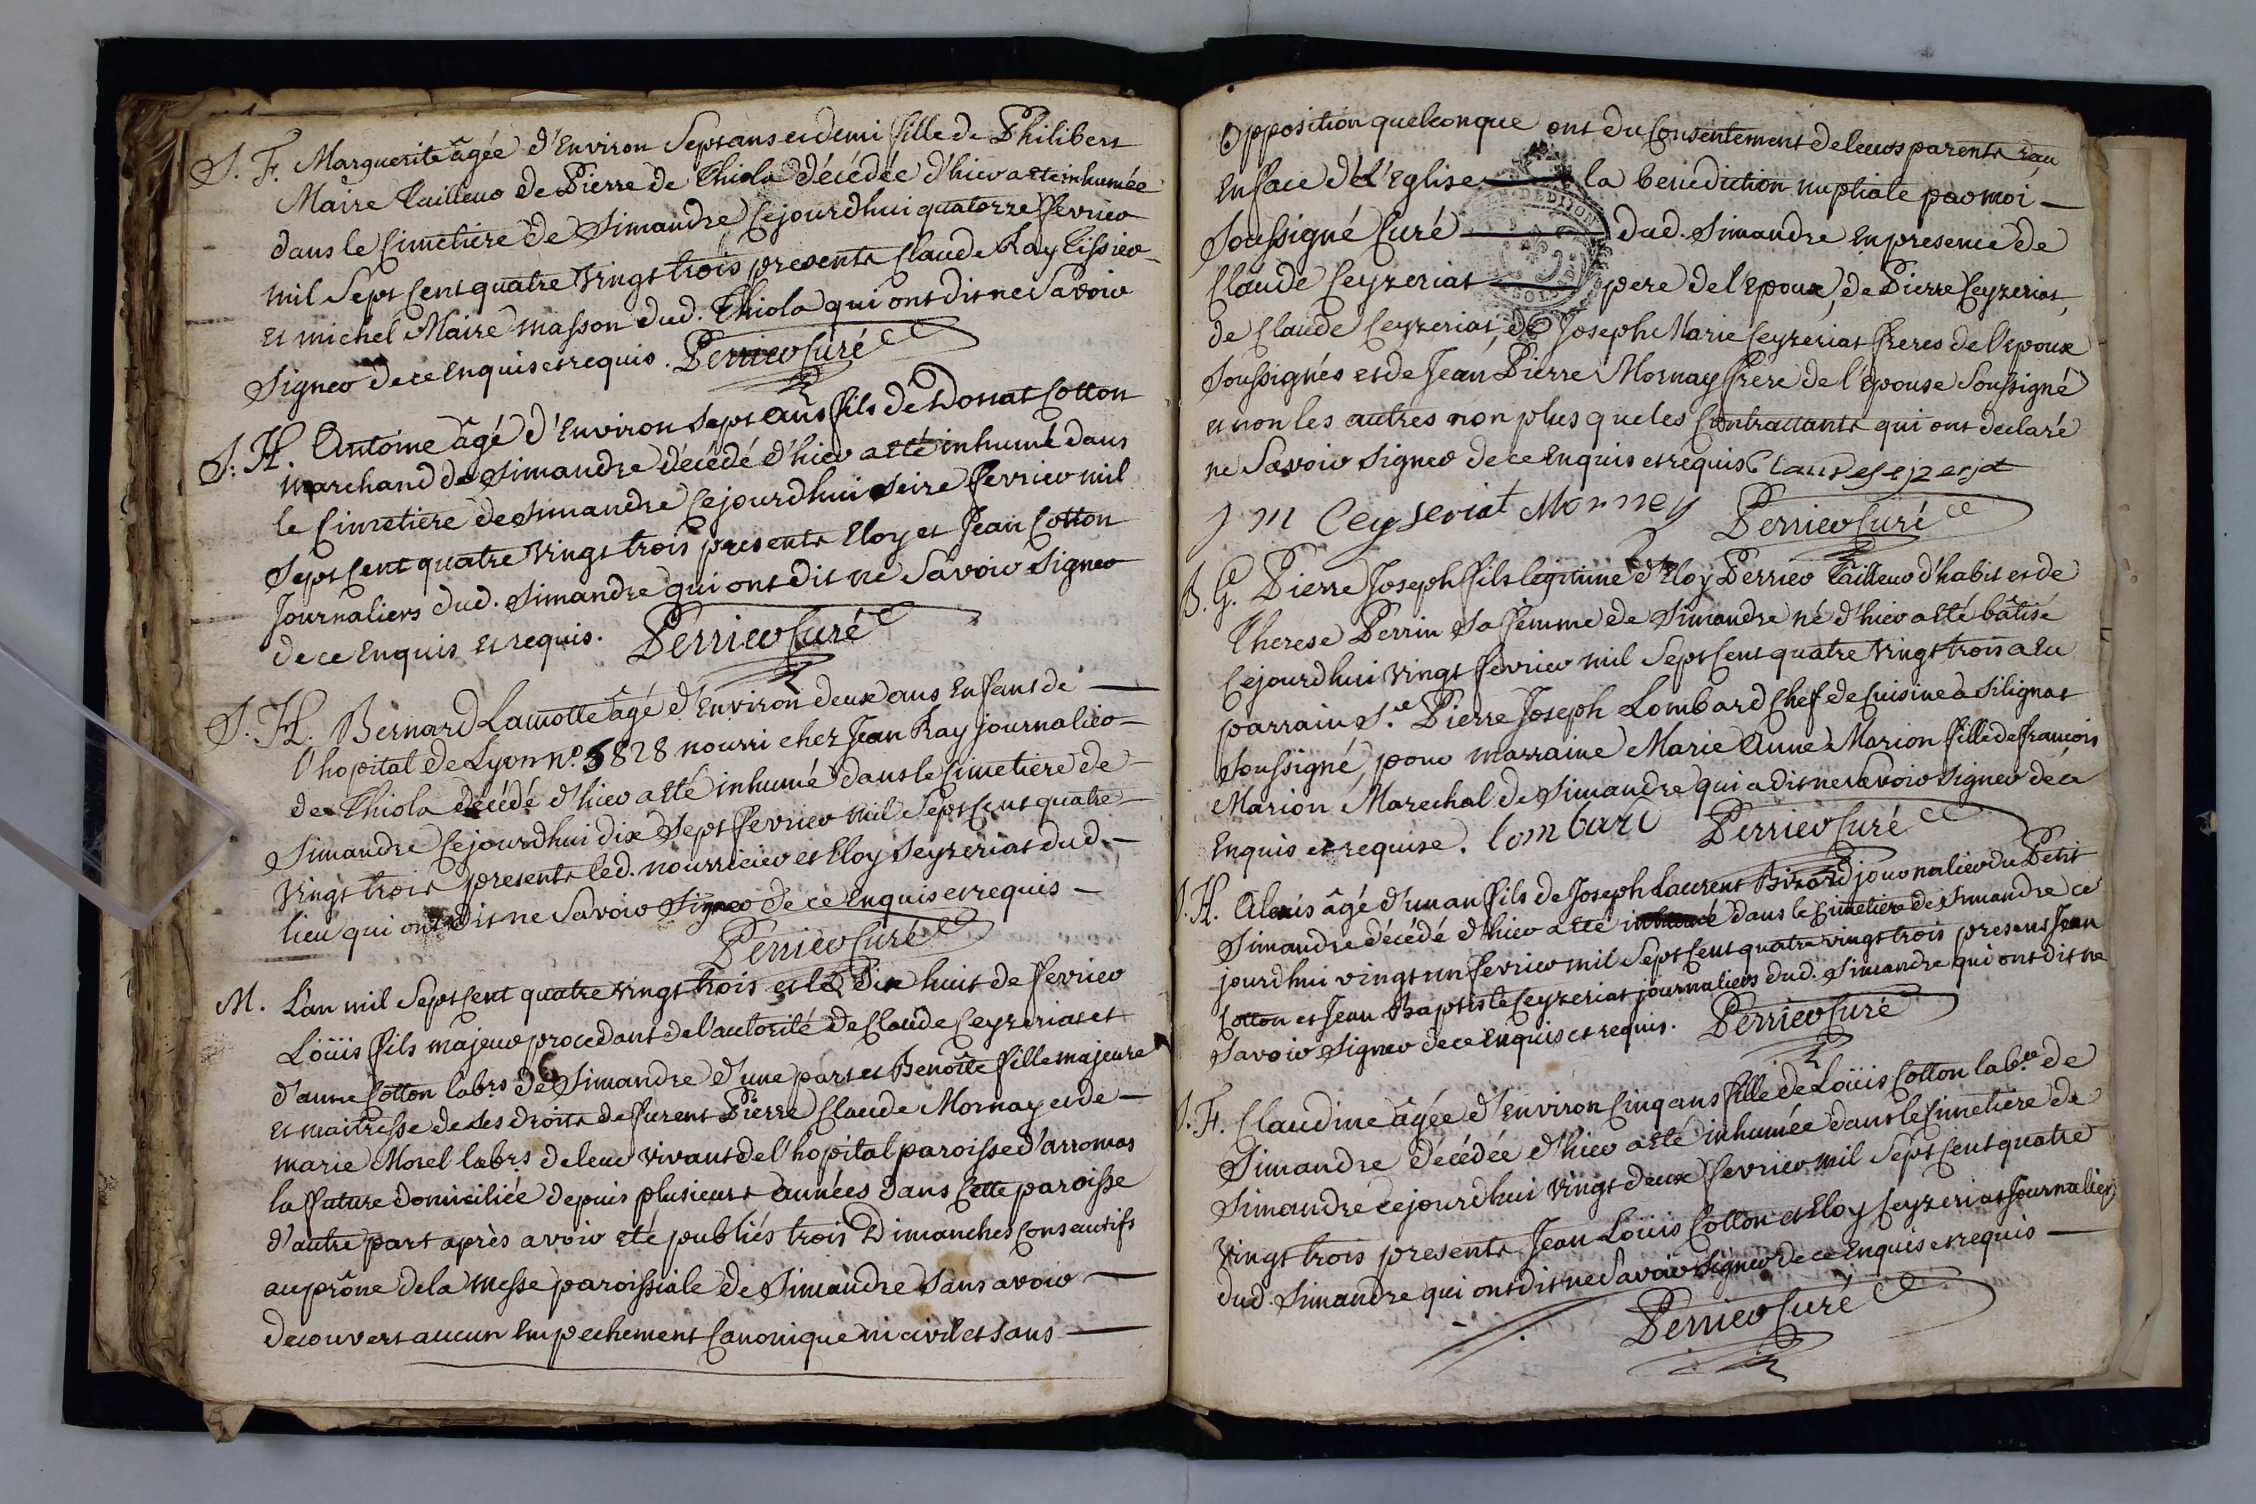 S. F. Marguerite âgée d'Environ Sept ans et demi fille de Philibert
Maire Tailleur de Pierre de Thiola décédée d'hier a eté inhumée
dans le Cimetiere de Simandre Cejourdhui quatorze fevrier
mil Sept Cent quatre Vingt trois presents Claude Ray Tissier
et michel Maire masson dud. Thiola qui ont dit ne Savoir
Signer de ce Enquis et requis. Perrier Curé
S. H. Antoine âgé d'Environ Sept ans fils de Donat Cotton
marchand de Simandre décédé d'hier a eté inhumé dans
le Cimetiere de Simandre Cejourdhui Seize fevrier mil
Sept Cent quatre Vingt trois presents Eloy et Jean Cotton
Journaliers dud. Simandre qui ont dit ne Savoir Signer
de ce Enquis et requis. Perrier Curé
S. H. Bernard Lamotte âgé d'Environ deux ans Enfant de
l'hopital de Lyon n.º 5828 nourri chez Jean Ray journalier
de Thiola décédé d'hier a eté inhumé dans le Cimetiere de
Simandre Cejourdhui dix Sept fevrier mil Sept Cent quatre
Vingt trois presents led. nourricier et Eloy Seyzeriat dud.
lieu qui ont dit ne Savoir Signer de ce Enquis et requis
Perrier Curé
M. L'an mil Sept Cent quatre Vingt trois et le Dix huit de fevrier
Loüis fils majeur procedant de l'autorité de Claude Ceyzeriat et
d'anne Cotton labrs de Simandre d'une part et Benoîte fille majeure
et maitresse de Ses droits de furent Pierre Claude Mornay et de
marie Morel labrs de leur Vivant de l'hopital paroisse d'arromas
la future domiciliée depuis plusieurs années dans Cette paroisse
d'autre part après avoir eté publiés trois Dimanches Consecutifs
au prône de la messe paroissiale de Simandre Sans avoir
decouvert aucun Empechement Canonique ni civil et sans
Opposition quelconque ont du Consentement de leurs parents reçu
En face de l'Eglise la benediction nuptiale par moi
Soussigné Curé dud. Simandre En presence de
Claude Ceyzeriat pere de l'epoux, de Pierre Ceyzeriat,
de Claude Ceyzeriat, de Joseph Marie Ceyzeriat freres de l'epoux
Soussignés et de Jean Pierre Mornay frere de l'epouse Soussigné
et non les autres non plus que les Contractants qui ont declaré
ne Savoir Signer de ce Enquis et requis Claude sejzerjat
j m Ceyseriat Morney Perrier Curé
B. G. Pierre Joseph fils legitime d'Eloy Perrier Tailleur d'habit et de
Therese Perrin Sa femme de Simandre né d'hier a eté bâtisé
Cejourdhui Vingt fevrier mil Sept Cent quatre Vingt trois a eu
parrain S.r Pierre Joseph Lombard Chef de Cuisine à Silignat
Soussigné, pour marraine Marie Anne Marion fille de francois
Marion Marechal de Simandre qui a dit ne Savoir Signer de ce
Enquis et requise. lombard Perrier Curé
S. H. Alexis âgé d'un an fils de Joseph Laurent Bizord journalier du Petit
Simandre décédé d'hier a eté inhumé dans le Cimetiere de Simandre ce
jourdhui vingt un fevrier mil Sept Cent quatre vingt trois presens Jean
Cotton et Jean Baptiste Ceyzeriat journaliers dud. Simandre qui ont dit ne
Savoir Signer de ce Enquis et requis. Perrier Curé
S. F. Claudine âgée d'Environ Cinq ans fille de Loüis Cotton lab.r de
Simandre décédée d'hier a eté inhumée dans le Cimetiere de
Simandre cejourdhui Vingt deux fevrier mil Sept Cent quatre
Vingt trois presents Jean Loüis Cotton et Eloy Ceyzeriat Journaliers
dud. Simandre qui ont dit ne Savoir Signer de ce Enquis et requis
Perrier Curé